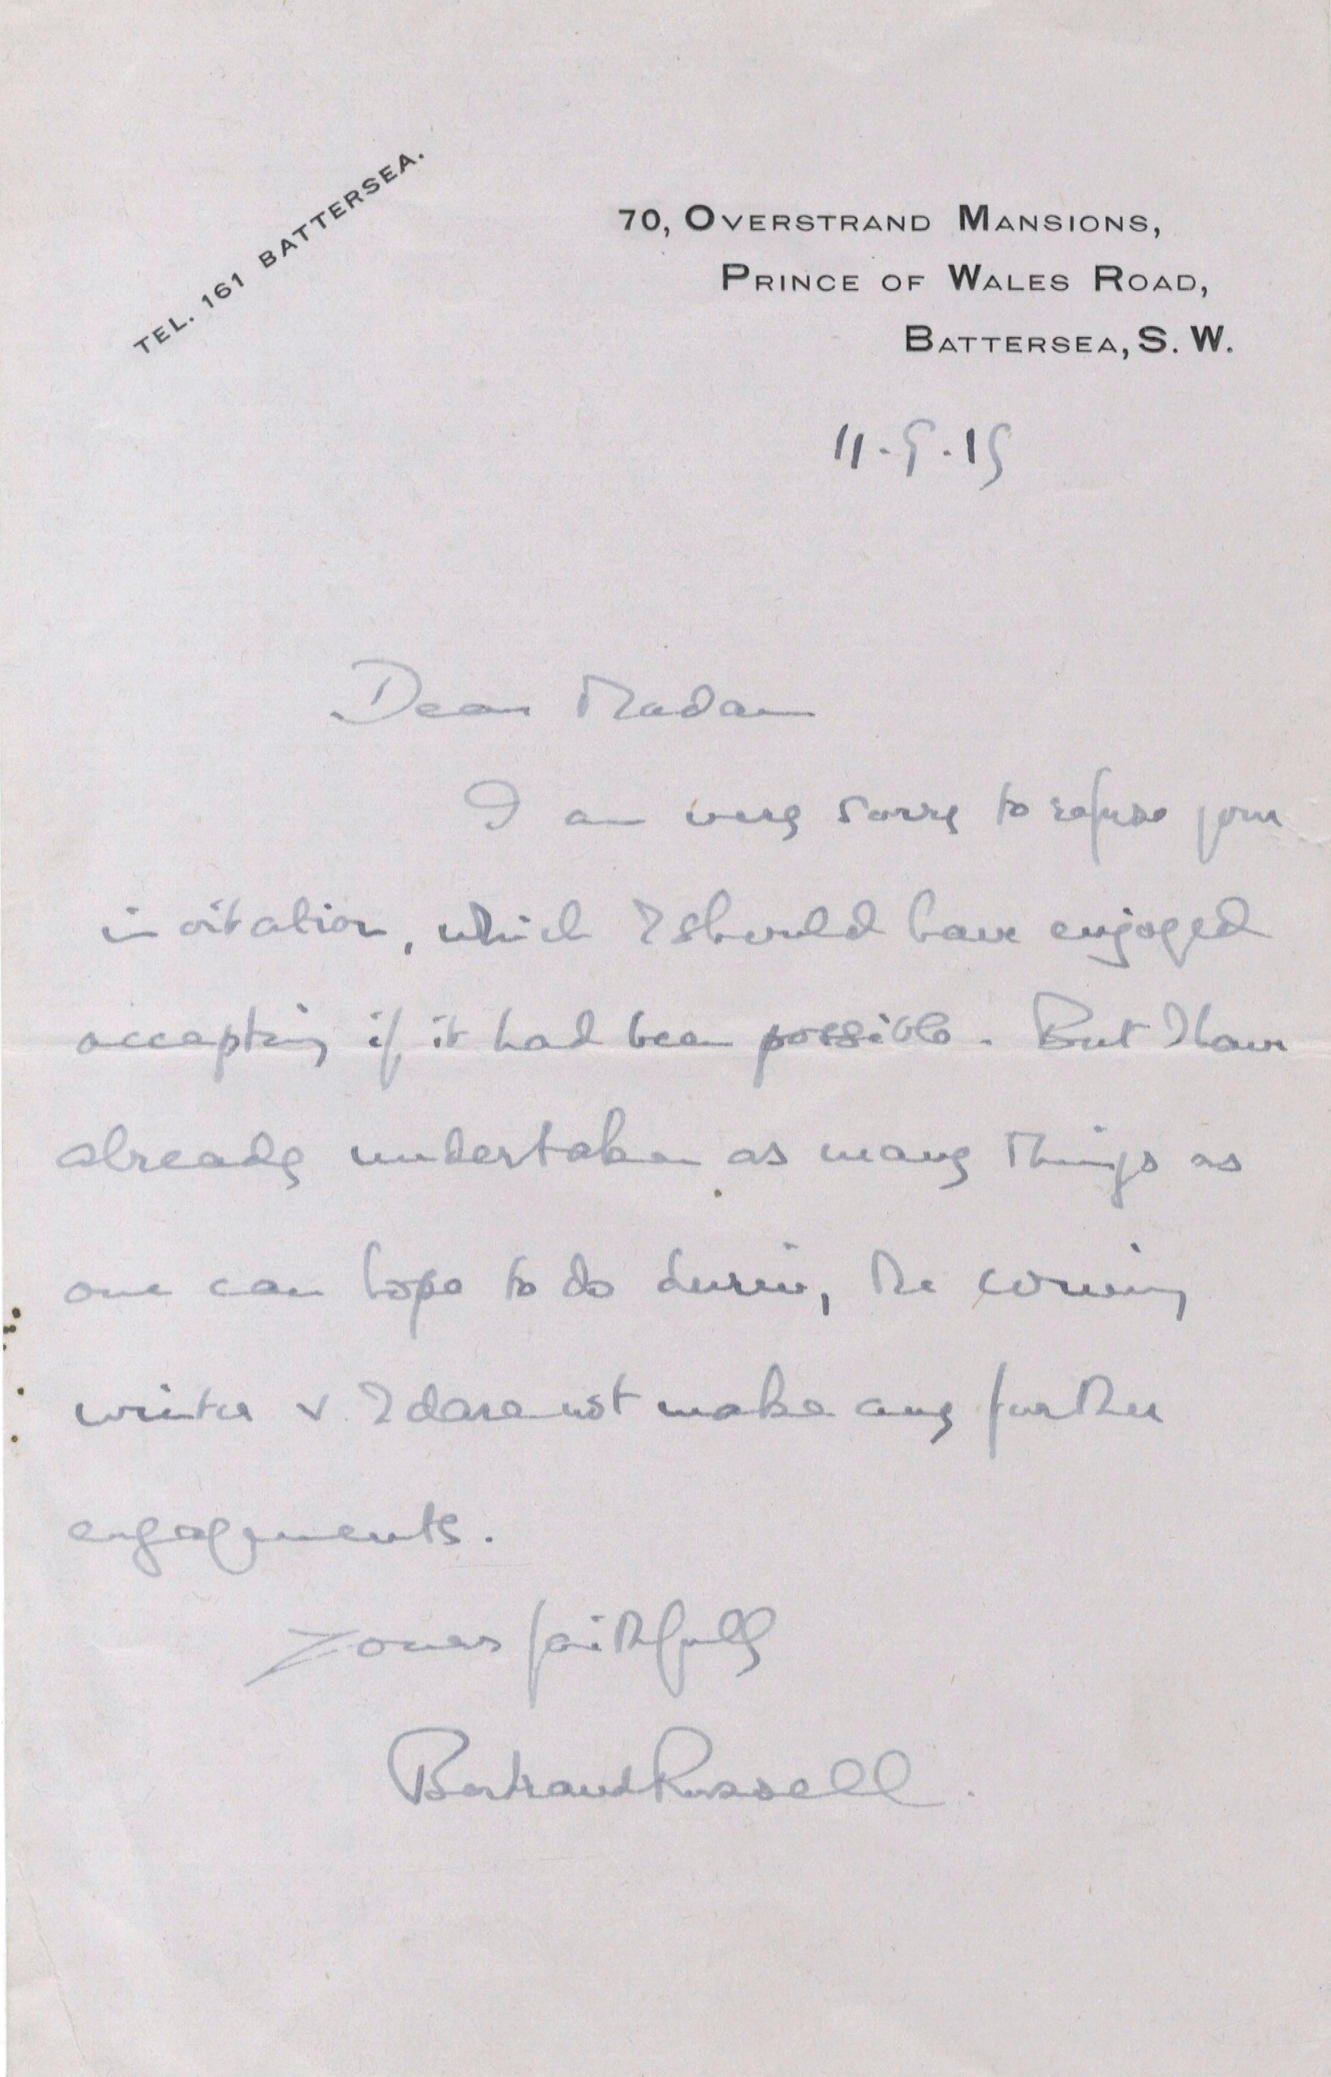 TEL. 161 BATTERSEA.
70, OVERSTRAND MANSIONS,
PRINCE OF WALES ROAD,
BATTERSEA, S. W.
11.9.19
Dear Madam
I am very sorry to refuse your
invitation, which I should have enjoyed
accepting if it had been possible. But I have
already undertaken as many things as
one can hope to do during the coming
winter & I dare not make any further
engagements.
Yours faithfully
Bertrand Russell.